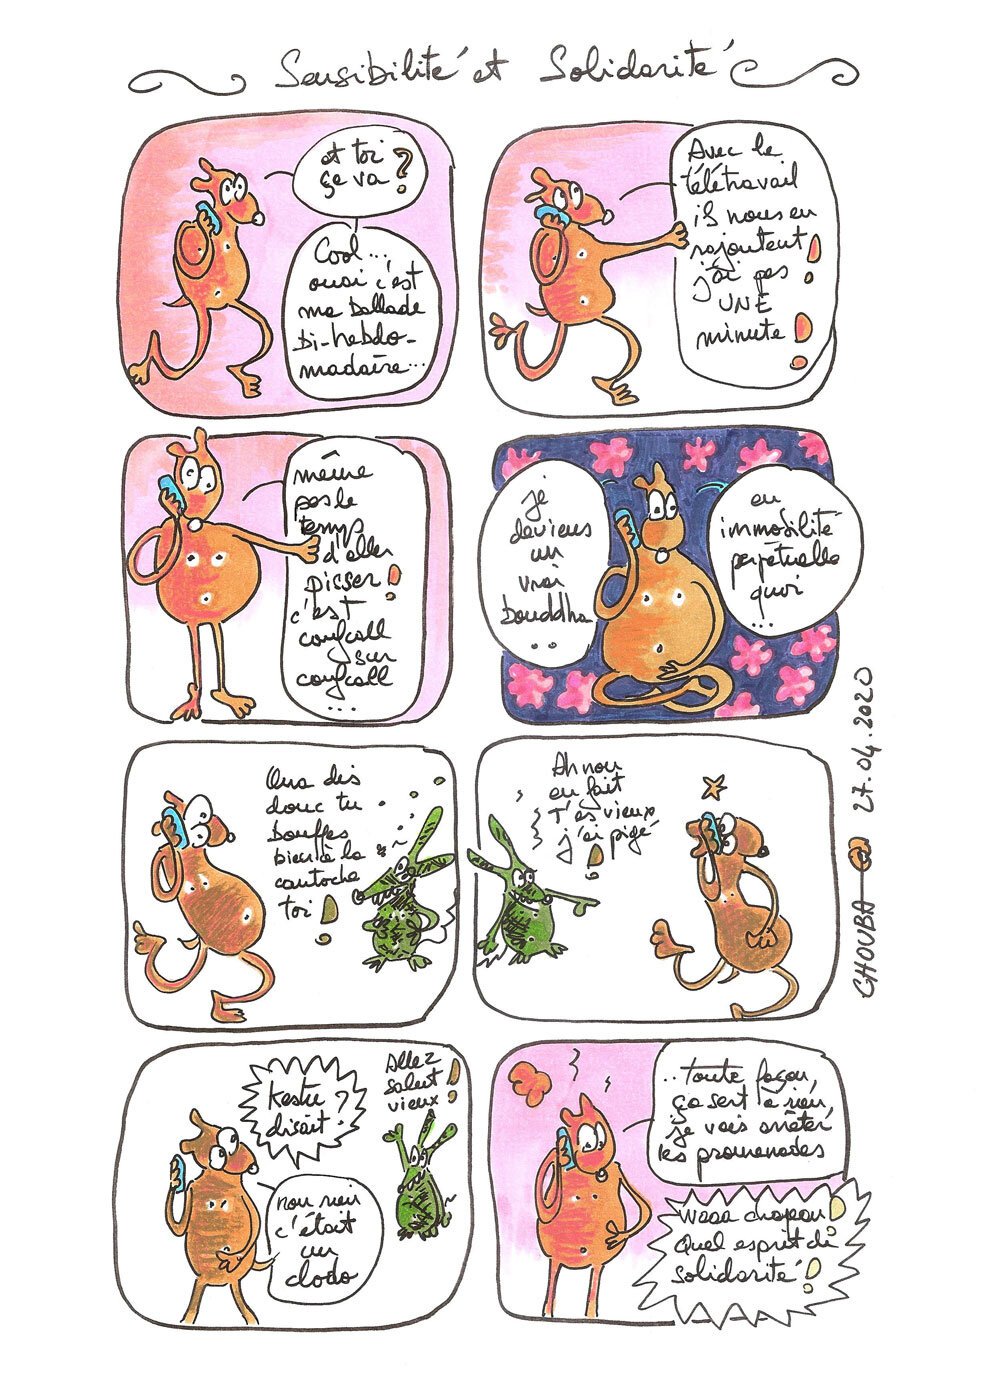 Sensibilité et Solidarité
et toi
ça va ?
Cool...
ouai c'est
ma ballade
bi-hebdo-
madaire...
Avec le
télétravail
ils nous en
rajoutent !
j'ai pas
UNE
minute !
!
même
pas le
temps
d'aller
pisser !
c'est
confcall
sur
confcall
...
je
deviens
un
vrai
bouddha
...
en
immobilité
perpétuelle
quoi
...
Oua dis
donc tu
bouffes
bien à la
cantoche
toi !
Ah non
en fait
T'es vieux
j'ai pigé
!
Kestu ?
disait.
non rien
c'était
un
clodo
Allez
salut
vieux !
..toute façon,
ça sert à rien,
je vais arrêter
les promenades
waaa chapau !
Quel esprit de
solidarité !
CHOUBA 27.04.2020